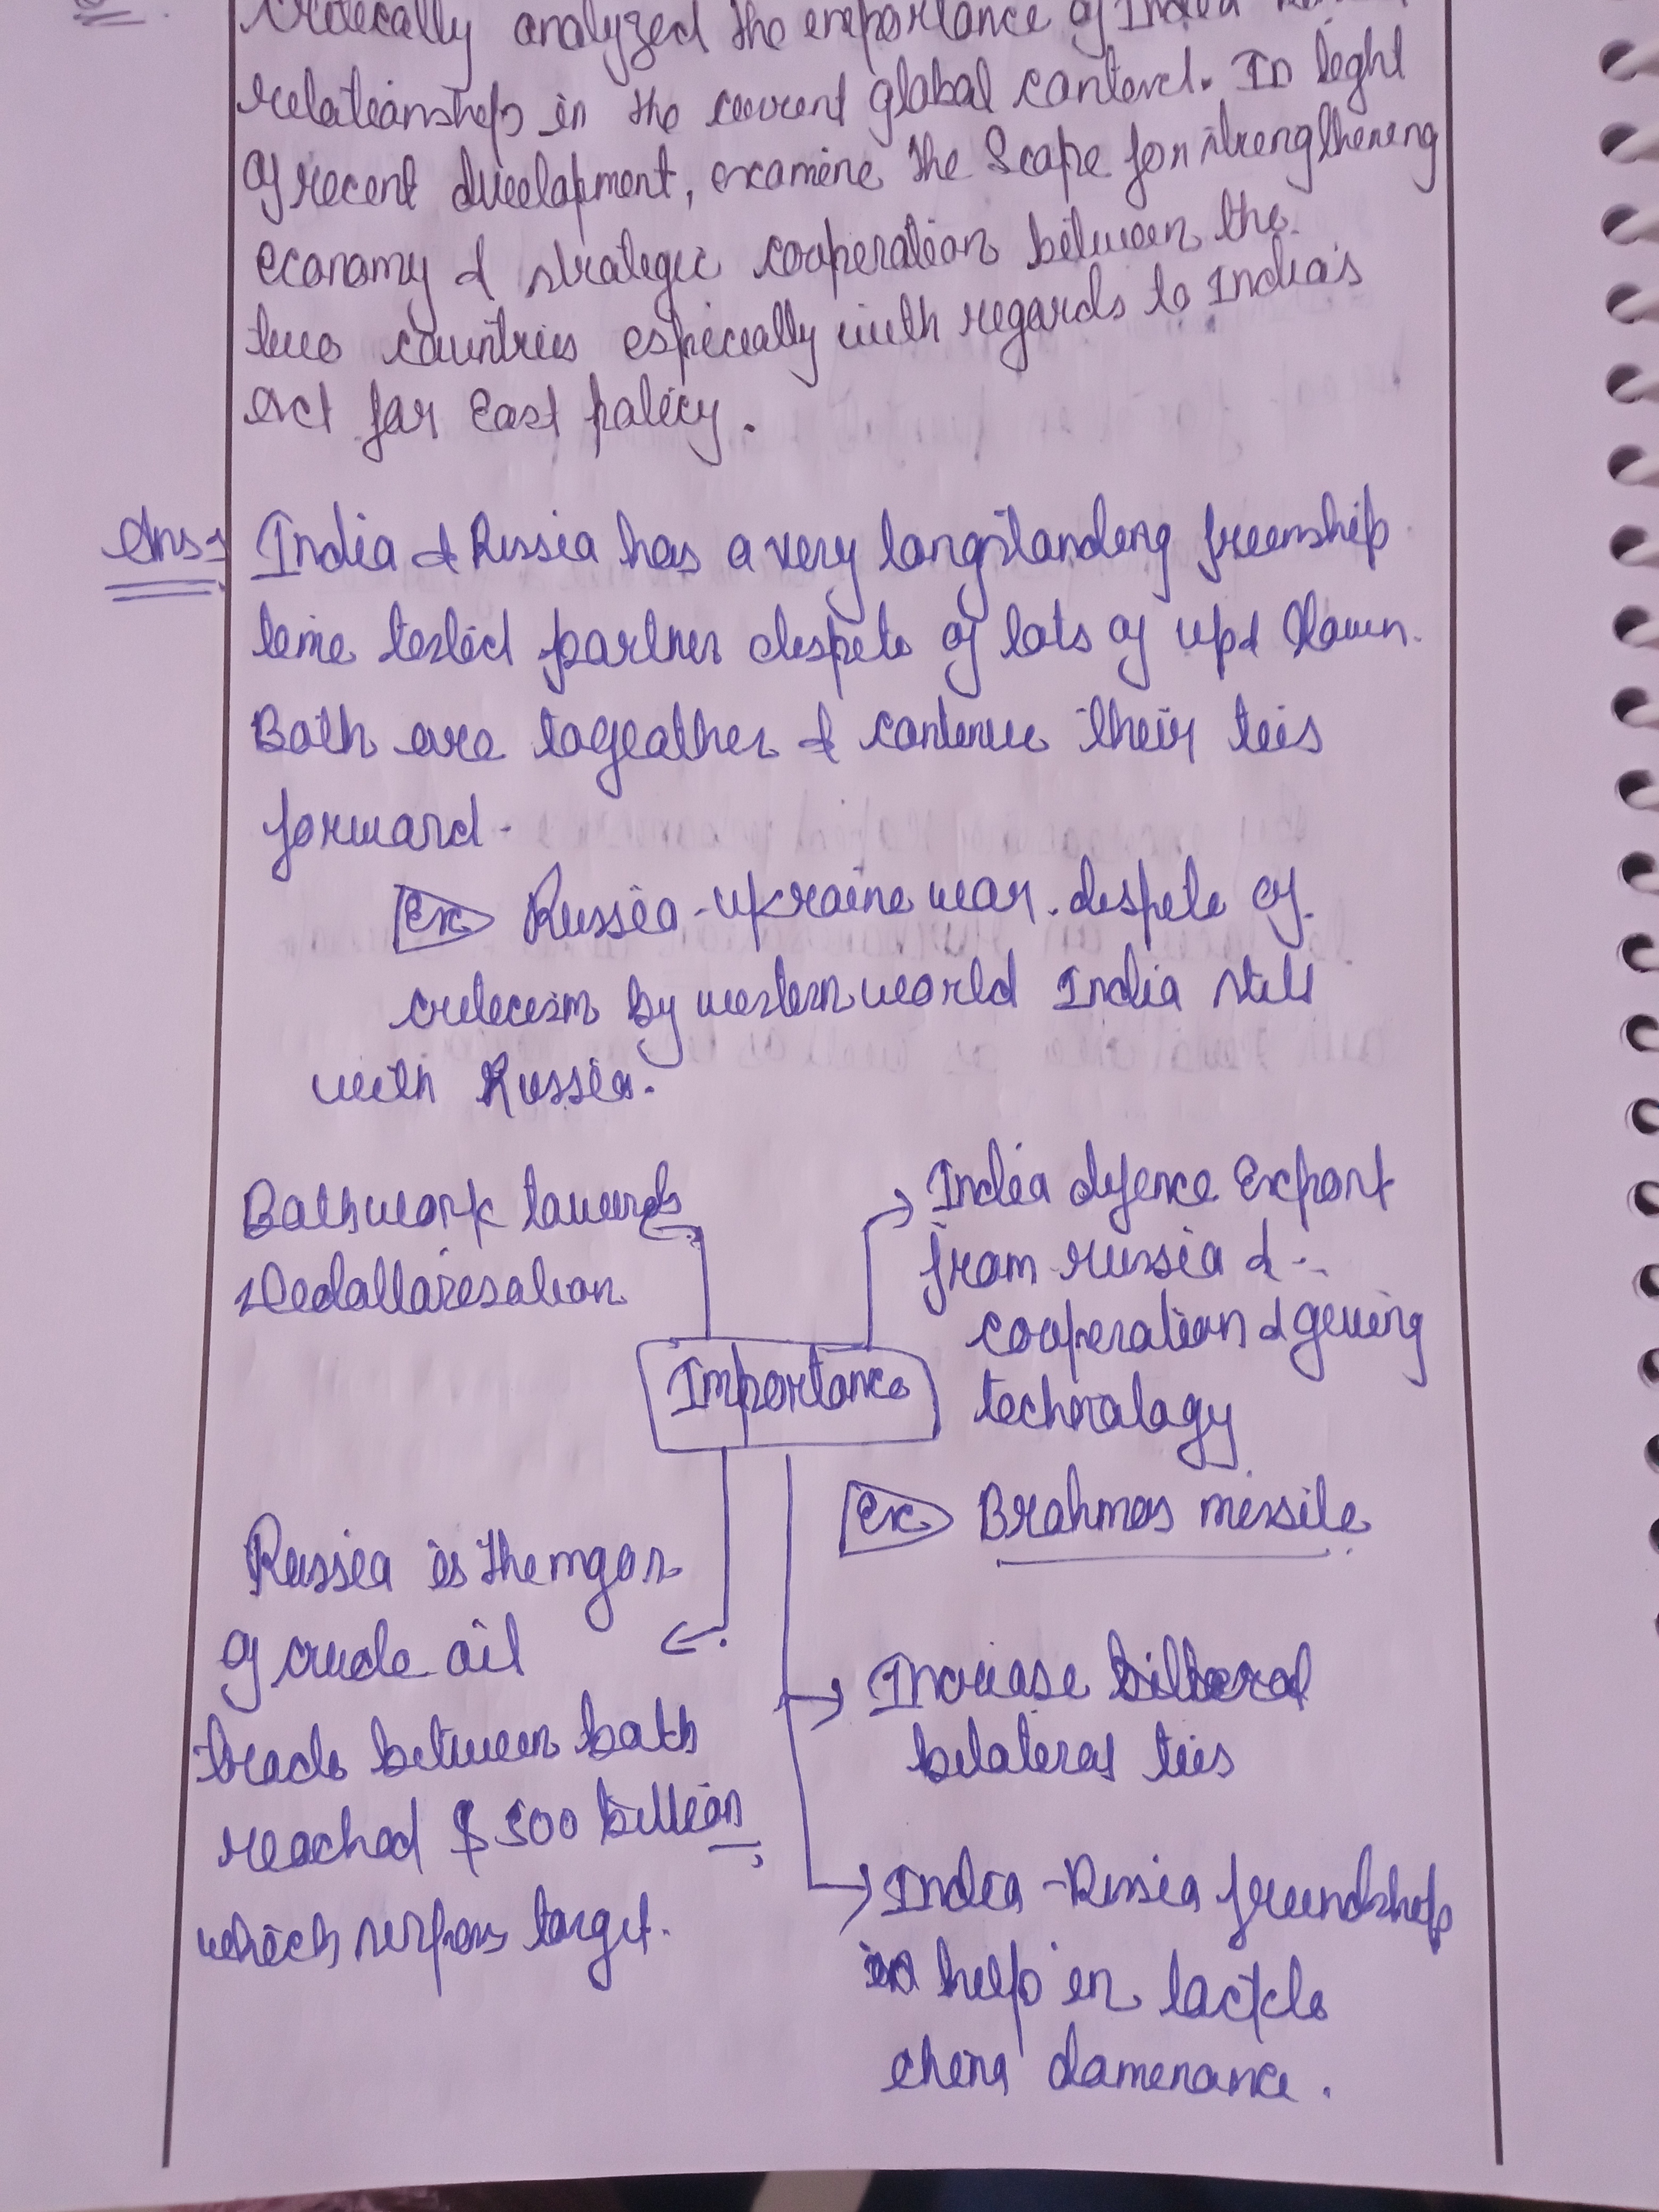 critically analyzed the importance of India
relationship in the current global context. In light
of recent development, examine the Scope for strengthening
economy & strategic cooperation between the
two countries especially with regards to India's
act far East policy.
Ans:
India & Russia has a very longstanding freenship
time tested partner despite of lots of up & down.
Both are togeather & continue their ties
forward.
Ex Russia-Ukraine war. despite of
criticism by western world India still
with Russia.
Both work towards
Dedollarisation
India defence Export
from russia &
cooperation & geving
technology
Importance
Ex Brahmos missile
Russia is the
of crude oil
trade between both
reached $ 500 billion
which surpass target.
Increase
bilateral ties
India-Russia freendship
help in tackle
china domenance.